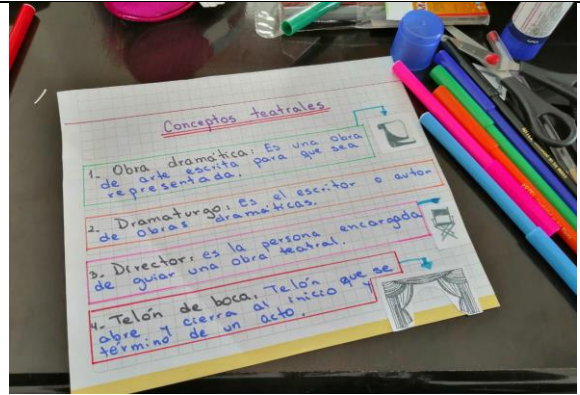 Conceptos teatrales
1- Obra dramática: Es una obra
de arte escrita para que sea
representada.
2- Dramaturgo: es el escritor o autor
de obras dramáticas.
3- Director: es la persona encargada
de guiar una obra teatral.
4- Telón de boca: Telón que se
abre y cierra al inicio y
término de un acto.